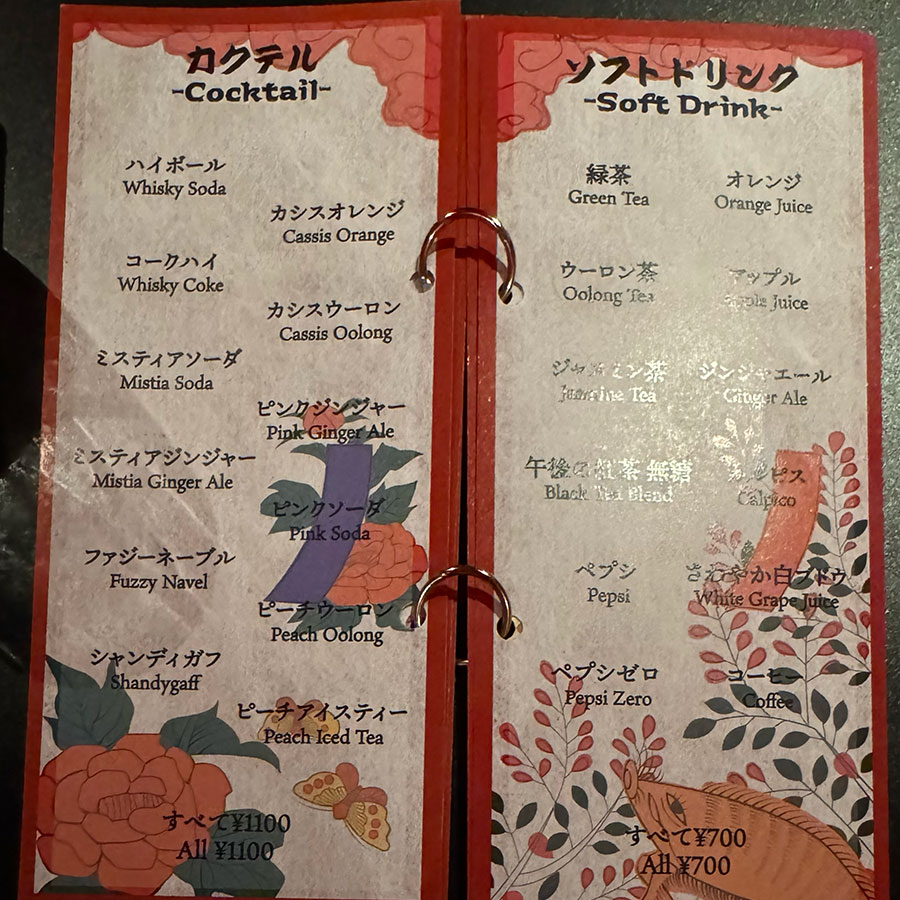 カクテル
-Cocktail-
ハイボール
Whisky Soda
コークハイ
Whisky Coke
ミスティアソーダ
Mistia Soda
ミスティアジンジャー
Mistia Ginger Ale
ファジーネーブル
Fuzzy Navel
シャンディガフ
Shandygaff
カシスオレンジ
Cassis Orange
カシスウーロン
Cassis Oolong
ピンクジンジャー
Pink Ginger Ale
ピンクソーダ
Pink Soda
ピーチウーロン
Peach Oolong
ピーチアイスティー
Peach Iced Tea
すべて¥1100
All ¥1100
ソフトドリンク
-Soft Drink-
緑茶
Green Tea
ウーロン茶
Oolong Tea
ジャスミン茶
Jasmine Tea
午後の紅茶 無糖
Black Tea Blend
ペプシ
Pepsi
ペプシゼロ
Pepsi Zero
オレンジ
Orange Juice
アップル
Apple Juice
ジンジャエール
Ginger Ale
カルピス
Calpico
さわやか白ブドウ
White Grape Juice
コーヒー
Coffee
すべて¥700
All ¥700